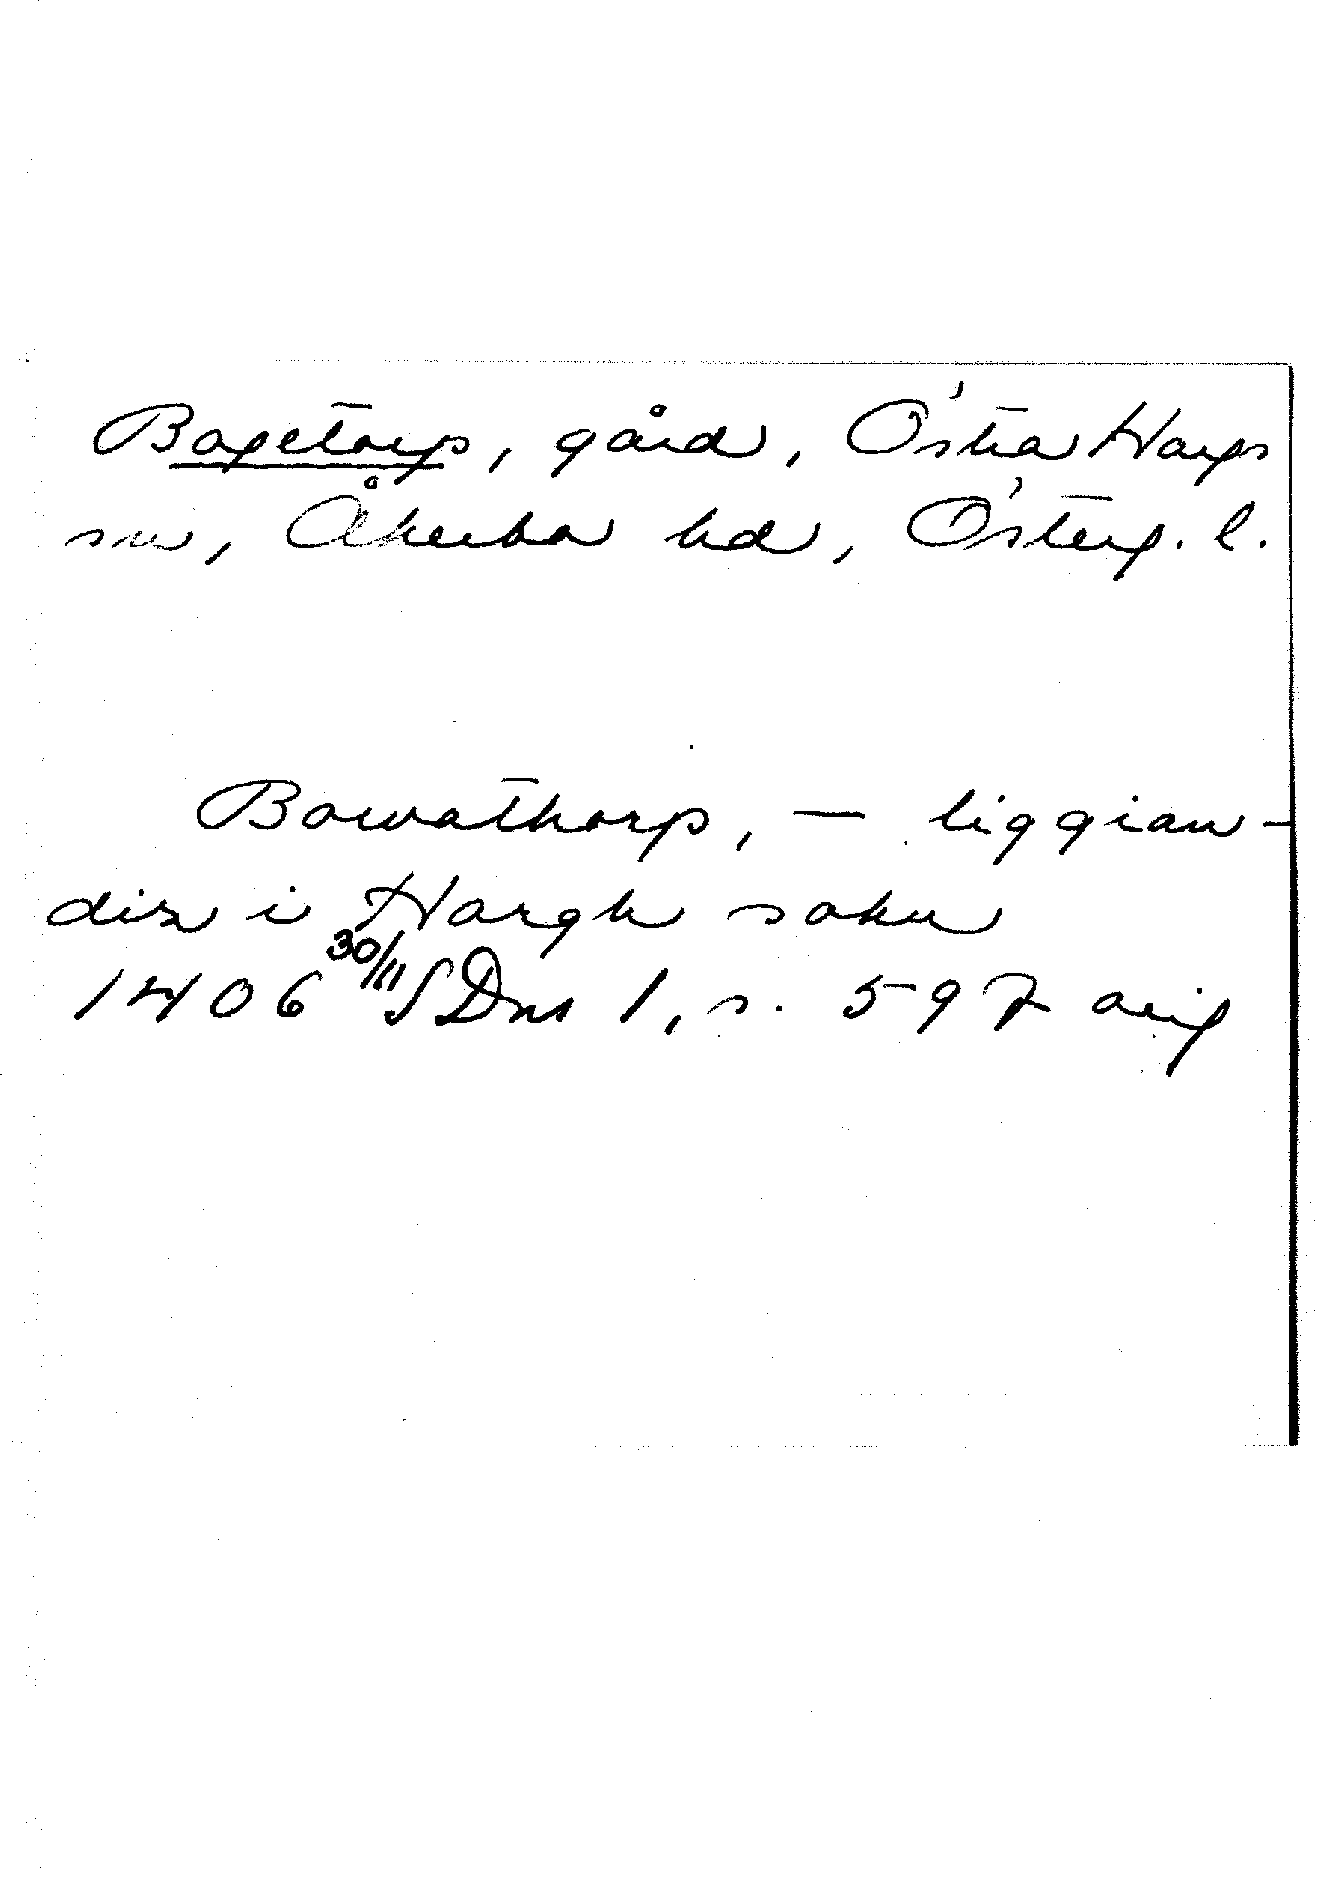 Bogetorp, gård, Östra Hargs
sn, Åkerbo hd, Österg. l.
Bowathorp, — liggian-
dis i Hargh sokn
1406 30/11 SDns 1, s. 597 orig